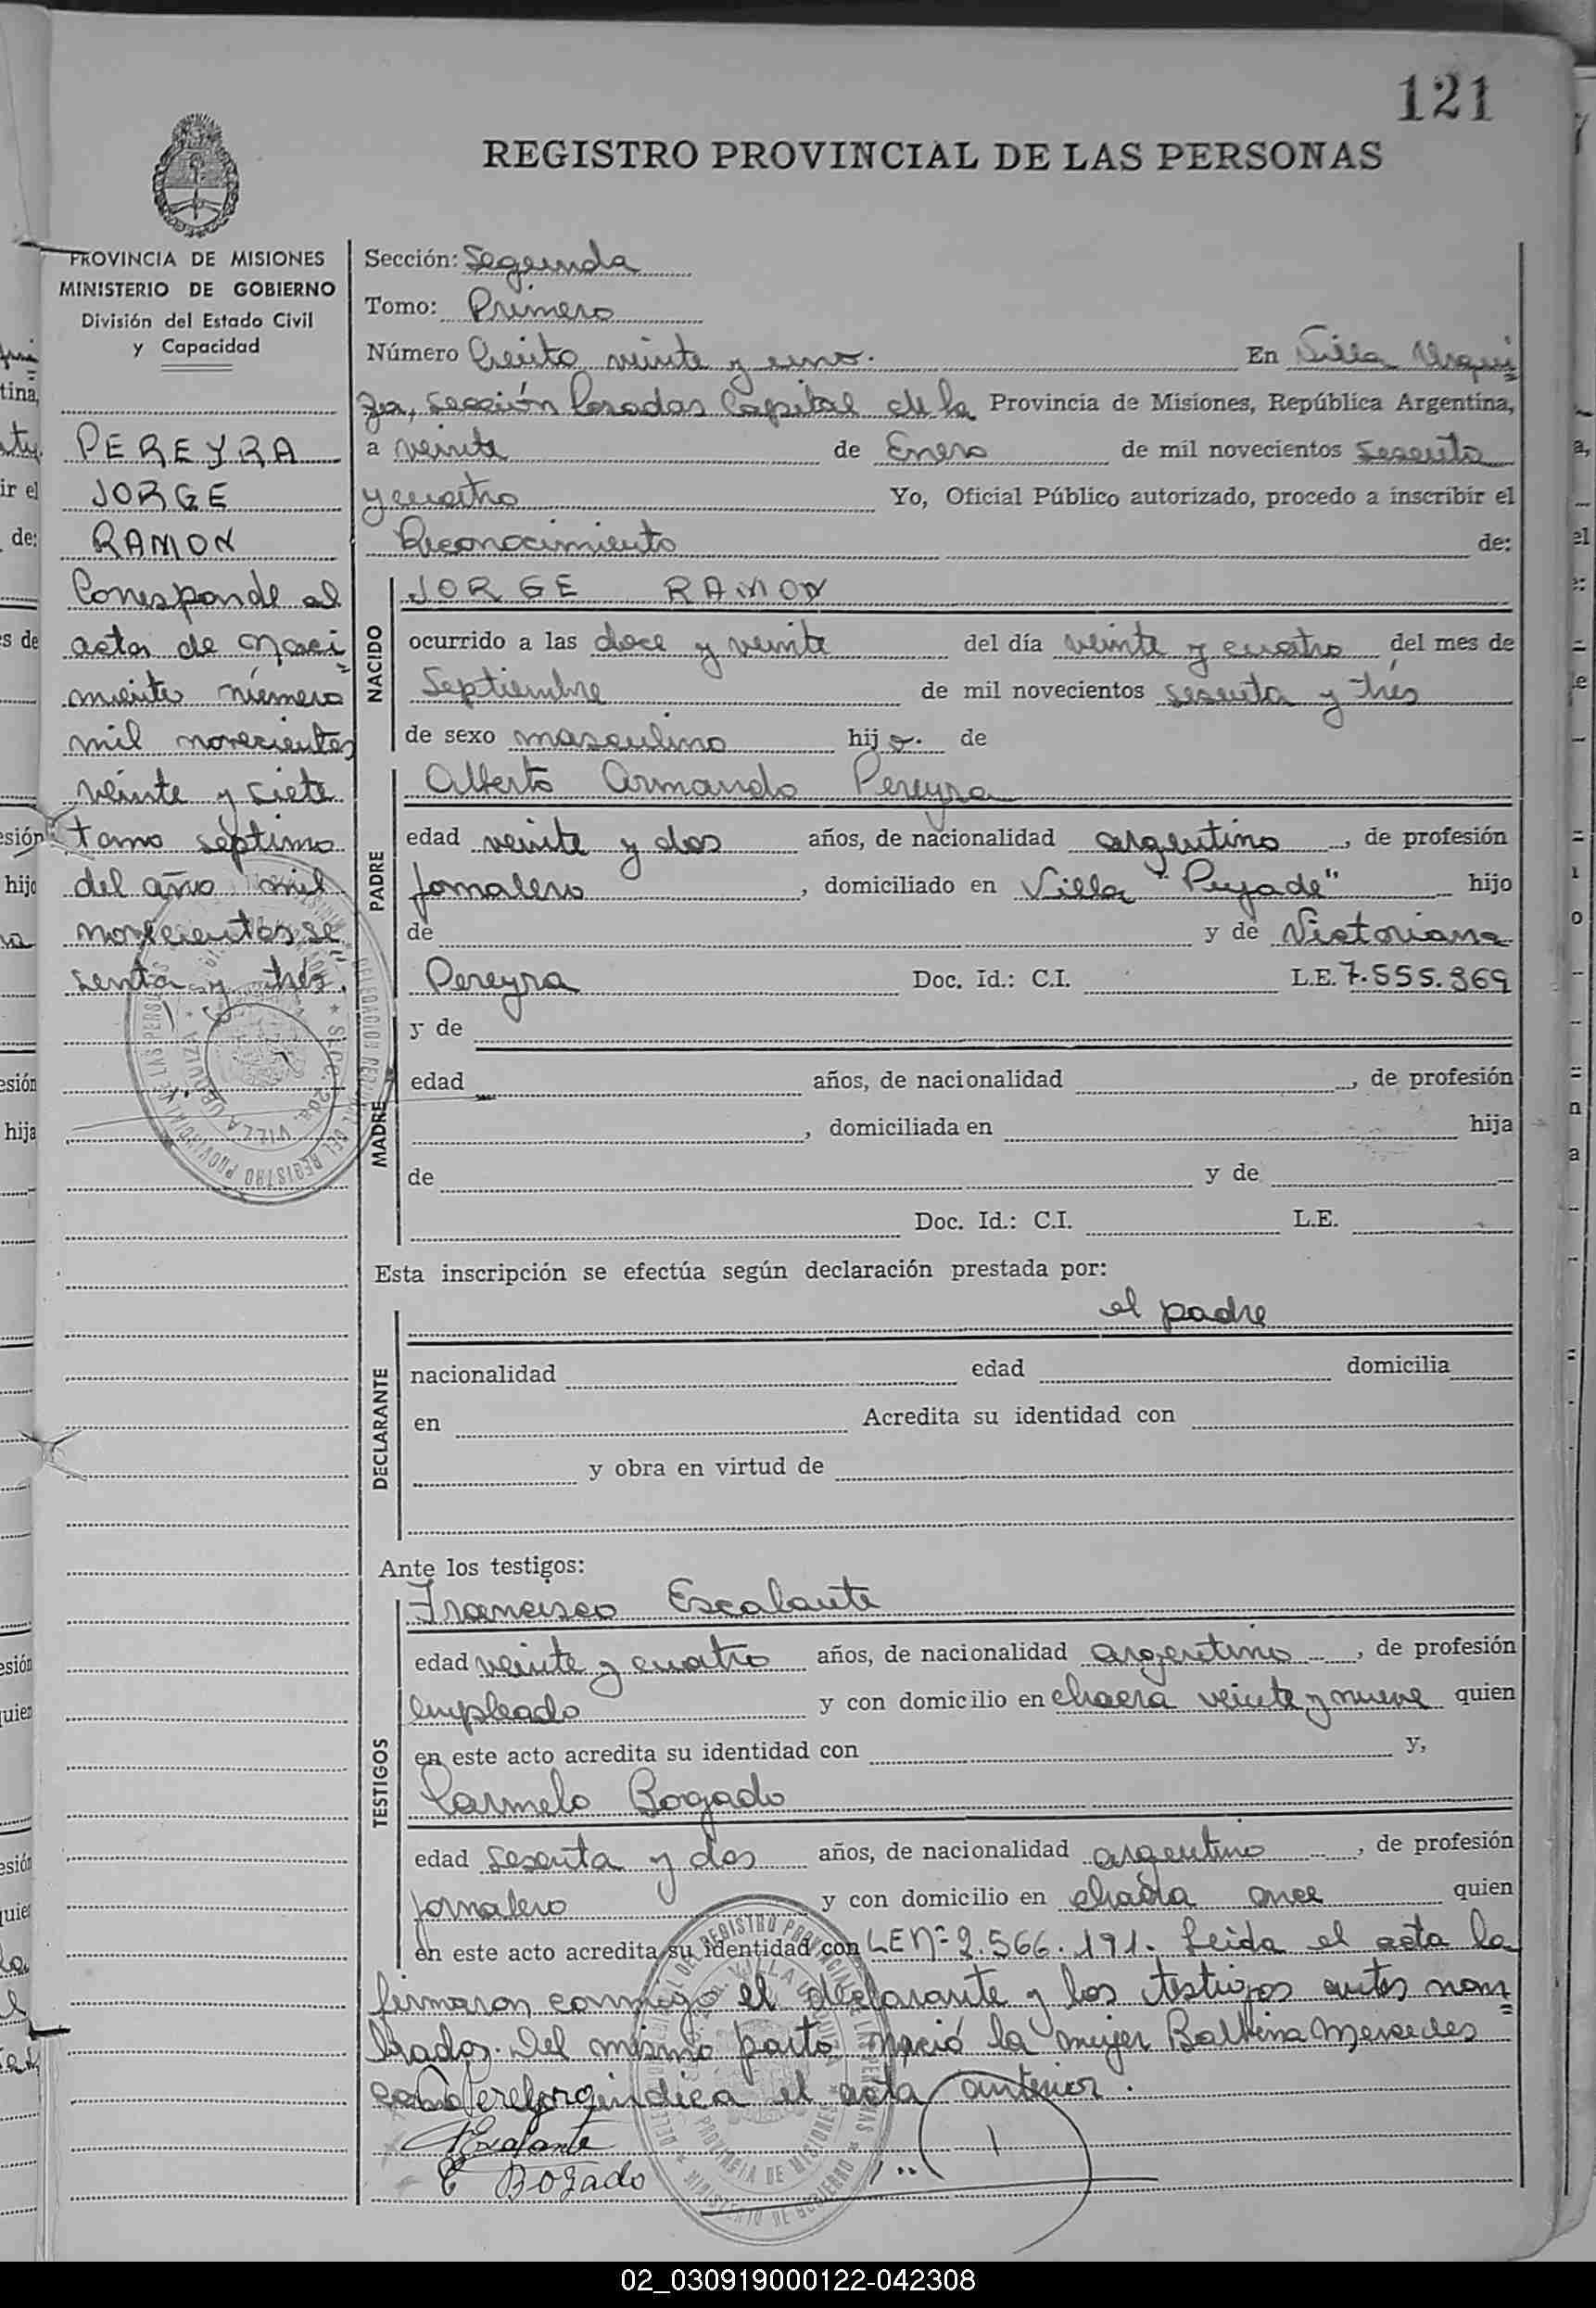 121
REGISTRO PROVINCIAL DE LAS PERSONAS
PROVINCIA DE MISIONES
MINISTERIO DE GOBIERNO
División del Estado Civil
y Capacidad
PEREYRA
JORGE
RAMON
Corresponde al
acta de naci=
miento número
mil novecientos
veinte y siete
tomo séptimo
del año mil
novecientos se=
senta y trés.
Sección: Segunda
Tomo: Primero
Número Ciento veinte y uno. En Villa Urqui=
za, Sección Posadas Capital de la Provincia de Misiones, República Argentina,
a veinte de Enero de mil novecientos sesenta
y cuatro Yo, Oficial Público autorizado, procedo a inscribir el
Reconocimiento de:
NACIDO
JORGE RAMON
ocurrido a las doce y veinte del día veinte y cuatro del mes de
Septiembre de mil novecientos sesenta y trés
de sexo masculino hijo. de
PADRE
Alberto Armando Pereyra
edad veinte y dos años, de nacionalidad argentino, de profesión
jornalero, domiciliado en Villa "Pujade" hijo
de y de Victoriana
Pereyra Doc. Id.: C.I. L.E. 7.555.369
MADRE
y de
edad años, de nacionalidad , de profesión
, domiciliada en hija
de y de
Doc. Id.: C.I. L.E.
Esta inscripción se efectúa según declaración prestada por:
DECLARANTE
el padre
nacionalidad edad domicilia
en Acredita su identidad con
y obra en virtud de
Ante los testigos:
TESTIGOS
Francisco Escalante
edad veinte y cuatro años, de nacionalidad argentino, de profesión
empleado y con domicilio en chacra veinte y nueve quien
en este acto acredita su identidad con y,
Carmelo Bogado
edad sesenta y dos años, de nacionalidad argentino, de profesión
jornalero y con domicilio en chacra once quien
en este acto acredita su identidad con LENº 2.566.191. Leida el acta la
firmaron conmigo el declarante y los testigos antes nom=
brados. Del mismo parto nació la mujer Balbina Mercedes
como indica el acta anterior.
Escalante
C Bogado
02_030919000122-042308